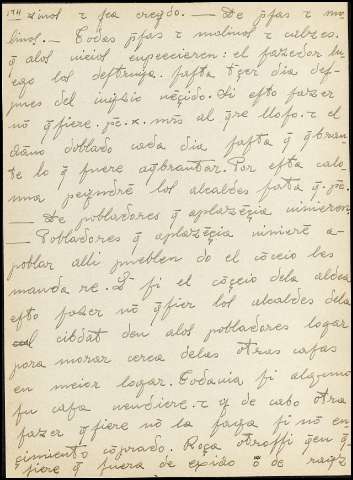 zinos τ sea creydo. — De p̃sas τ mo-
linos. — Todas p̃sas τ molinos τ calzes.
q̄ alos uicios enpeecieren: el fazedor lu-
ego los destruya. fasta t̃çer dia des-
pues del iuyzio
nō q̄siere. pc̄. x. mr̃s al q̄re lloso. τ el
dāno doblado cada dia fasta q̄ q̄bran-
te lo q̄ fuere aq̄brantar. Por esta calo-
nna peyndrē los alcaldes fata q̄ pc̄.
— De pobladores q̄ aplazēçia uinieron
— Pobladores q̄ aplazēçia uinierē a-
poblar alli pueblen do el cōceio les
manda re. Τ si el cōçeio dela aldea
esto fazer nō q̄sier los alcaldes dela
cibdat den alos pobladores logar
para morar cerca delas otras casas
en meior logar. Todauia si alguno
su casa uendiere. τ q̄ de cabo otra
fazer q̄siere nō la faga si nō en
çimiento cōprado. Roça otrossi q̄en q̄
q̄siere q̄ fuera de exido o de rayz